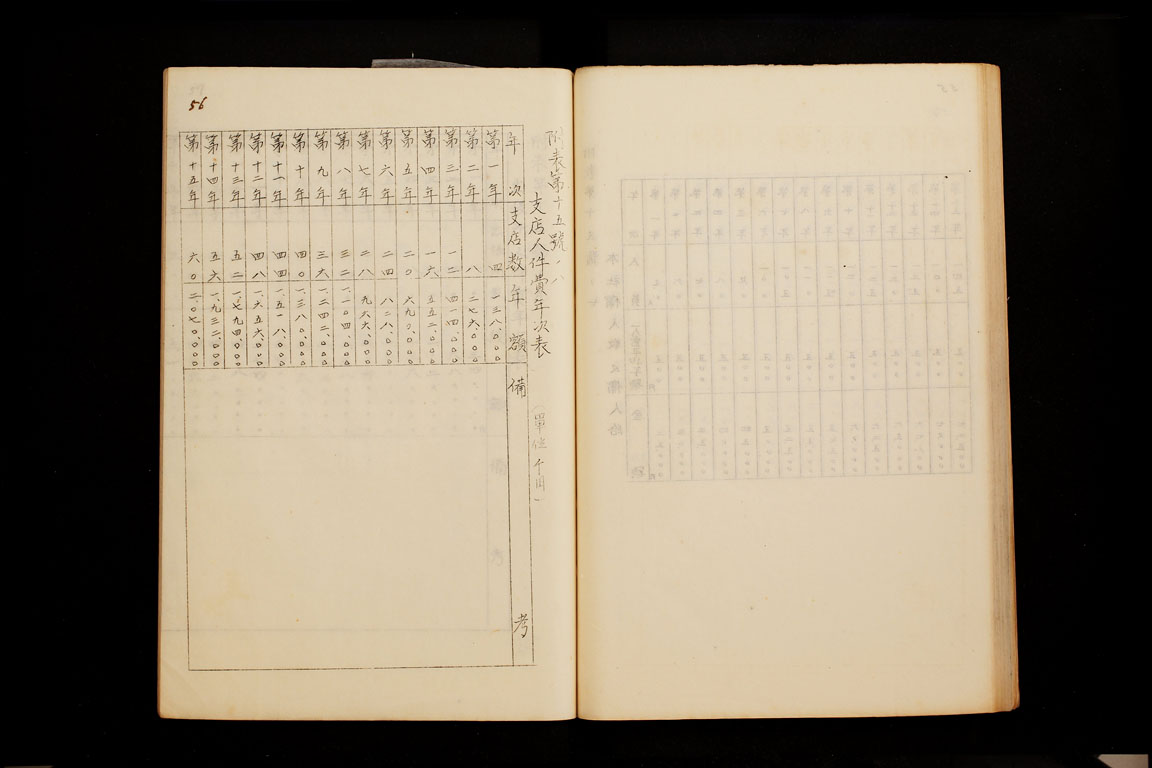 56
附表第十五號ノ八
支店人件費年次表 (單位千円)
年次 支店数 年額 備考
第一年 四 一三八,〇〇〇
第二年 八 二七六,〇〇〇
第三年 一二 四一四,〇〇〇
第四年 一六 五五二,〇〇〇
第五年 二〇 六九〇,〇〇〇
第六年 二四 八二八,〇〇〇
第七年 二八 九六六,〇〇〇
第八年 三二 一,一〇四,〇〇〇
第九年 三六 一,二四二,〇〇〇
第十年 四〇 一,三八〇,〇〇〇
第十一年 四四 一,五一八,〇〇〇
第十二年 四八 一,六五六,〇〇〇
第十三年 五二 一,七九四,〇〇〇
第十四年 五六 一,九三二,〇〇〇
第十五年 六〇 二,〇七〇,〇〇〇